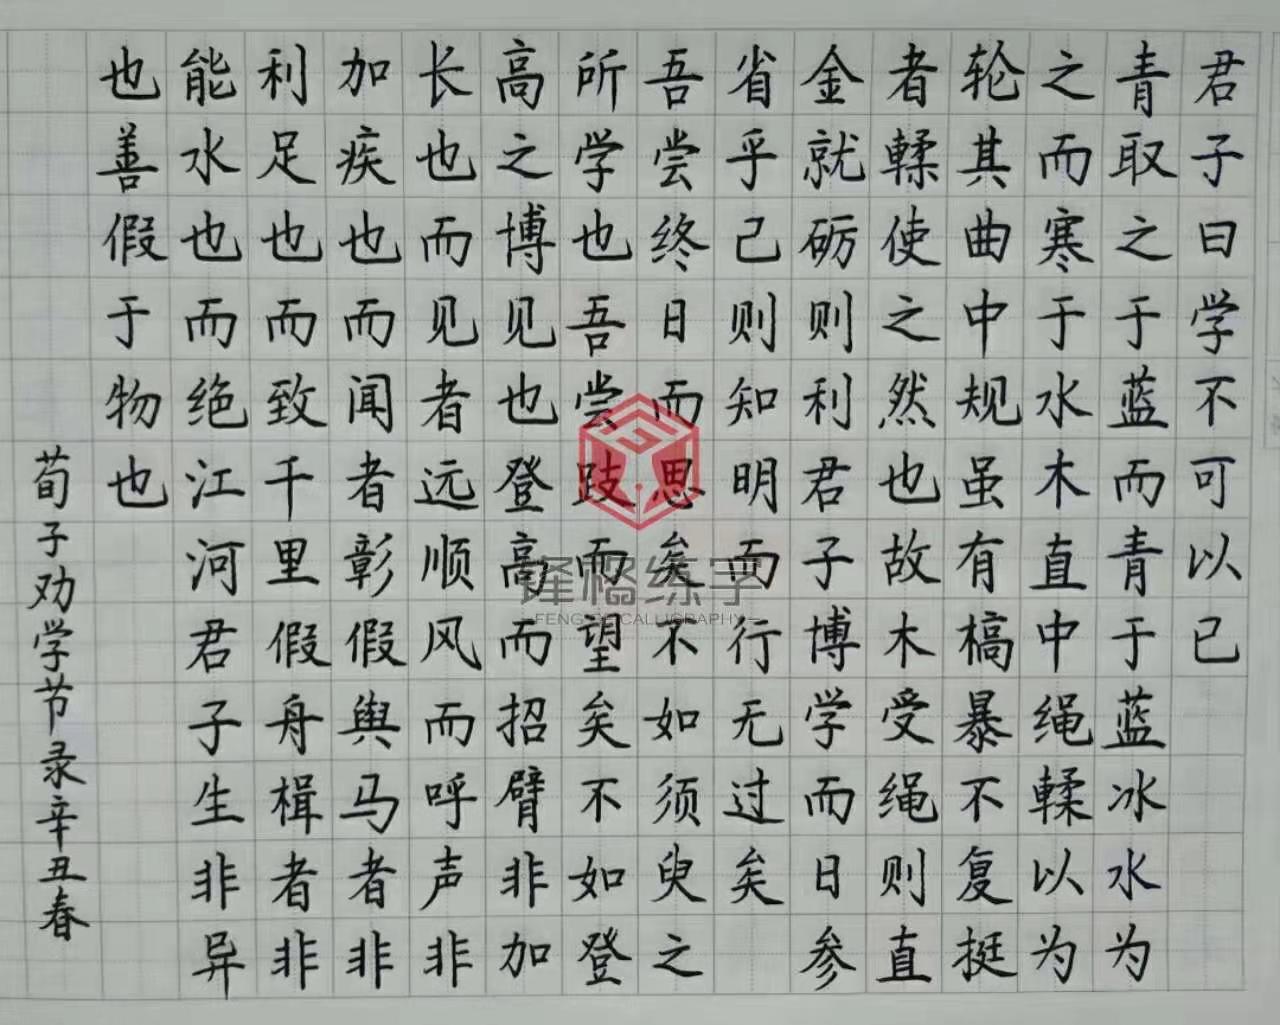 君子曰学不可以已
青取之于蓝而青于蓝冰水为
之而寒于水木直中绳輮以为
轮其曲中规虽有槁暴不复挺
者輮使之然也故木受绳则直
金就砺则利君子博学而日参
省乎己则知明而行无过矣
吾尝终日而思矣不如须臾之
所学也吾尝跂而望矣不如登
高之博见也登高而招臂非加
长也而见者远顺风而呼声非
加疾也而闻者彰假舆马者非
利足也而致千里假舟楫者非
能水也而绝江河君子生非异
也善假于物也
荀子劝学节录辛丑春
锋格练字
FENG GE CALLIGRAPHY